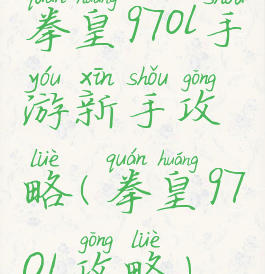 quán huáng shǒu
拳皇97OL手
yóu xīn shǒu gōng
游新手攻
lüè quán huáng
略(拳皇97
gōng lüè
OL攻略)